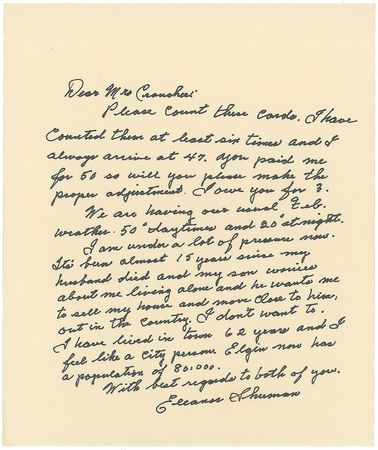 Dear Mrs Crancheri
Please count these cards. I have
counted them at least six times and I
always arrive at 47. You paid me
for 50 so will you please make the
proper adjustment. I owe you for 3.
We are having our usual Feb.
weather. 50° daytimes and 20° at night.
I am under a lot of pressure now.
Its been almost 15 years since my
husband died and my son worries
about me living alone and he wants me
to sell my house and move close to him,
out in the country. I don't want to.
I have lived in town 62 years and I
feel like a city person. Elgin now has
a population of 80,000.
With best regards to both of you.
Eleanor Shuman